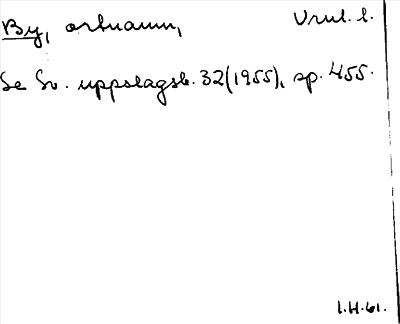 By, ortnamn, Vrml. l.
Se Sv. uppslagsb. 32(1955), sp. 455.
1.H.61.